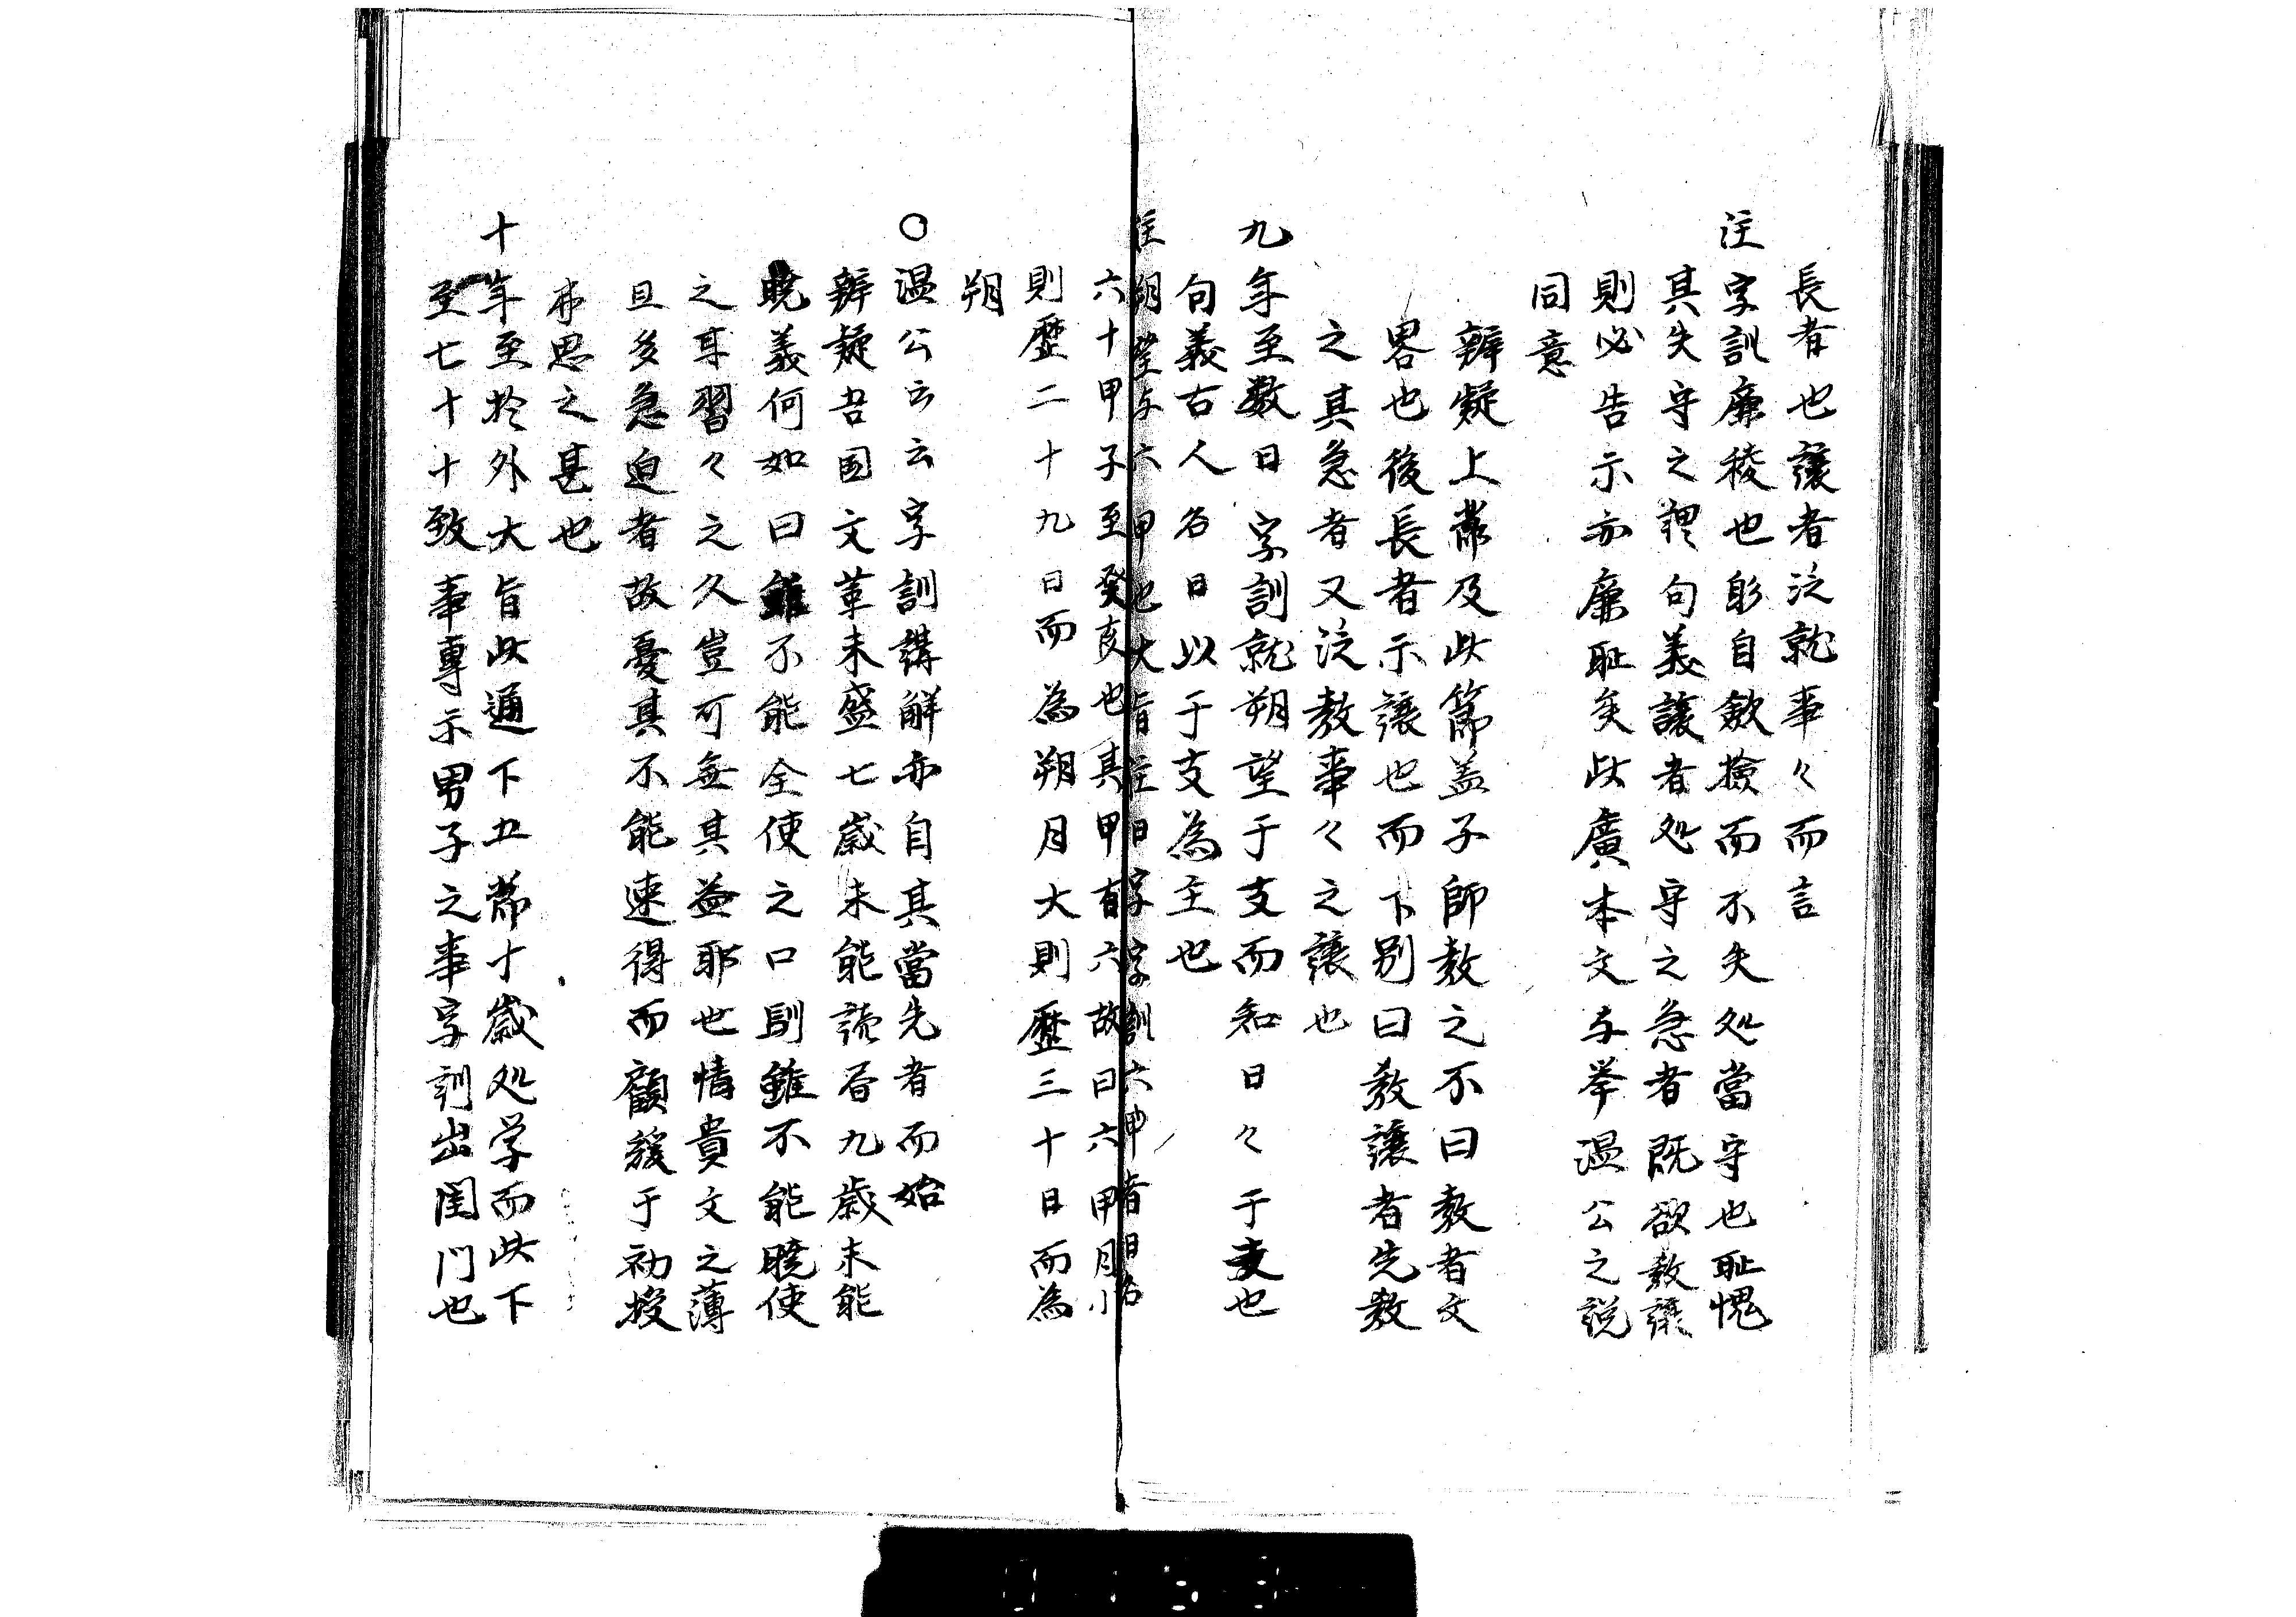 長者也讓者泛就事々而言
注字訓廉稜也
自斂撿而不失処當守也恥愧
其失守之
句義讓者処守之急者既欲教讓
則必告示亦廉恥矣此廣本文与挙温公之説
同意
辨疑上常及此篇盖子師教之不曰教者文
畧也後長者示讓也而下別曰教讓者先教
之其急者又泛教事々之讓也
九年至数日字訓就朔望于支而知日々于支也
句義古人名日以于支為主也
注朔望与六甲也大旨
日字
字訓六甲者日名
六十甲子至癸亥也其甲有六故曰六甲月小
則歷二十九日而為朔月大則歷三十日而為
朔
〇温公云云字訓講解亦自其當先者而始
辨疑吾国文革未盛七歳未能読
九歳未能
曉義何如曰雖不能全使之口訓雖不能曉使
之耳習々之之久豈可無其益耶世情貴文之薄
且多急迫者故憂其不能速得而顧緩于初授
弗思之甚也
十年至於外大旨此通下五節十歳処学而此下
至七十十致事專示男子之事字訓出閨門也